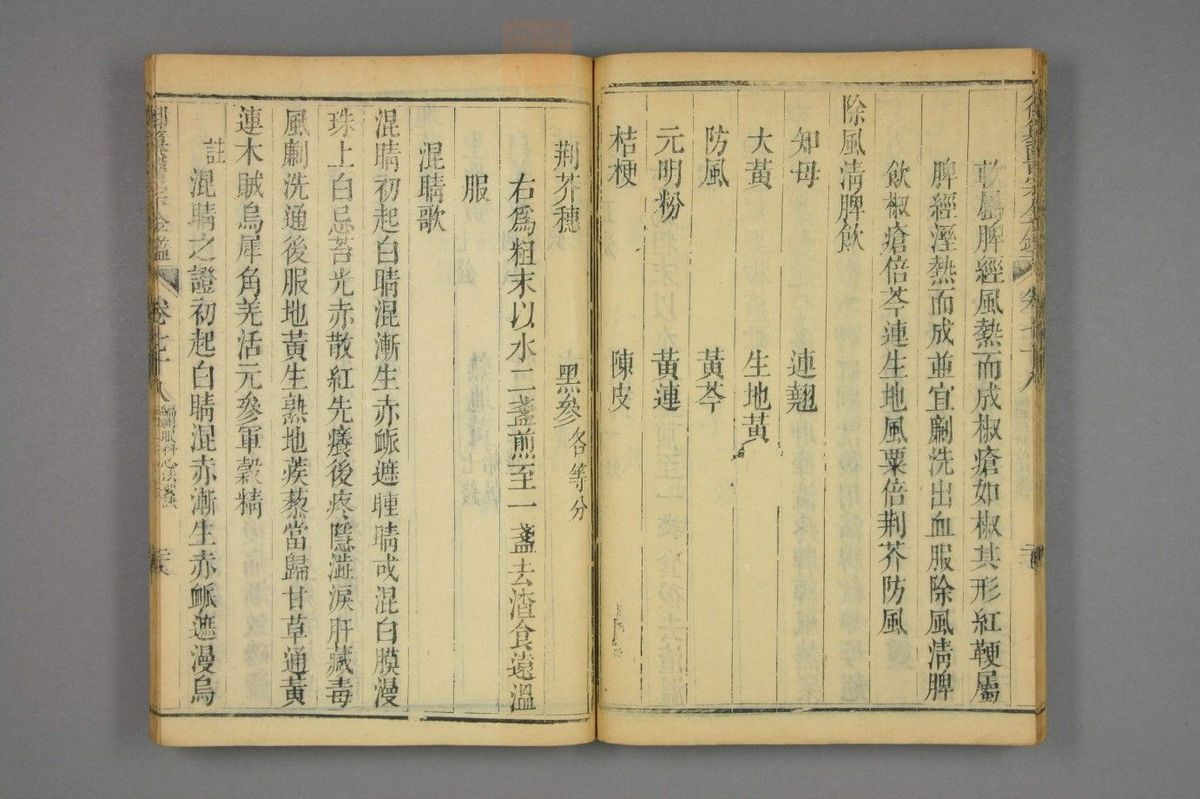 軟屬脾經風熱而成椒瘡如椒其形紅鞕屬
脾經溼熱而成並宜劆洗出血服除風淸脾
飲椒瘡倍芩連生地風粟倍荆芥防風
除風淸脾飲
知母 連翹
大黃 生地黃
防風 黃芩
元明粉 黃連
桔梗 陳皮
荆芥穗 黑參各等分
右爲粗末以水二盞煎至一盞去渣食遠溫
服
混睛歌
混睛初起白睛混漸生赤脈遮瞳睛或混白膜漫
珠上白忌苔光赤散紅先癢後疼隱澁淚肝藏毒
風劆洗通後服地黃生熟地蒺藜當歸甘草通黃
連木賊烏犀角羌活元參軍穀精
註
混睛之證初起白睛混赤漸生赤脈遮漫烏
卷七十八